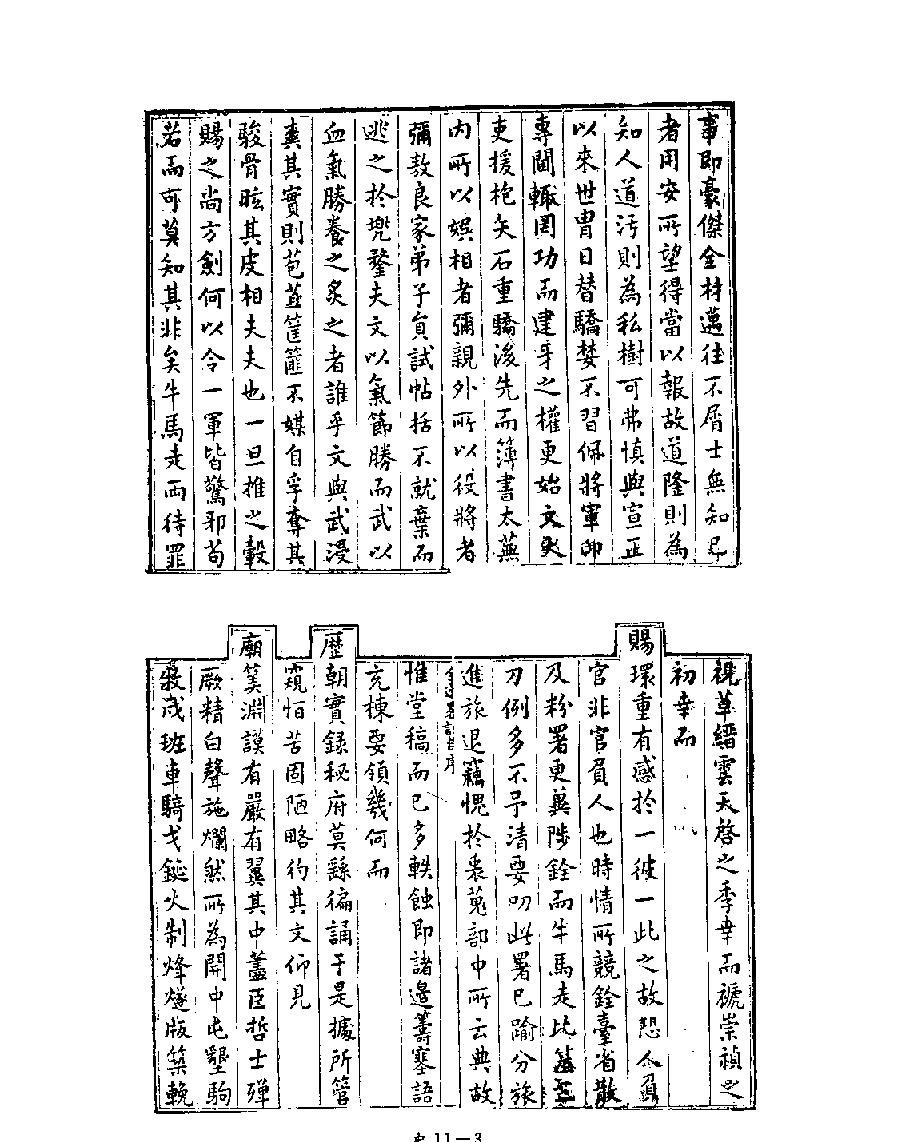 事即豪傑全材邁往不屑士無知己
者用安所望得當以報故道隆則為
知人道污則為私樹可弗慎與宣正
以來世胄日替驕婪不習佩將軍印
專閫輒罔功而建牙之權更始文
吏援枹矢石重驕後先而簿書太蕪
內所以娛相者彌親外所以役將者
彌敖良家弟子負試帖括不就棄而
逃之於兜鍪夫文以氣節勝而武以
血氣勝養之炙之者誰乎文與武漫
糞其實則苞苴筐篚不媒自孚奪其
駿骨眩其皮相夫夫也一旦推之轂
賜之尚方劍何以令一軍皆驚邪苟
若而可莫知其非矣牛馬走而待罪
視草縉雲天啓之季幸而褫崇禎之
初幸而
賜環重有感於一彼一此之故恕人
官非官負人也時情所競銓臺省散
及粉署更冀陟銓而牛馬走比
刀例多不予清要叨此署已踰分旅
進旅退竊愧於裒蒐部中所云典故
惟堂稿而已多軼蝕即諸邊籌塞語
充棟要領幾何而
歷朝實錄秘府莫繇徧誦于是據所管
窺怕苦固陋略彴其文仰見
廟筭淵謨有嚴有翼其中藎臣哲士殫
厥精白聲施爛然所為開中屯墾駒
牧戍班車騎戈鋋火制烽燧版築輓
史 11—3